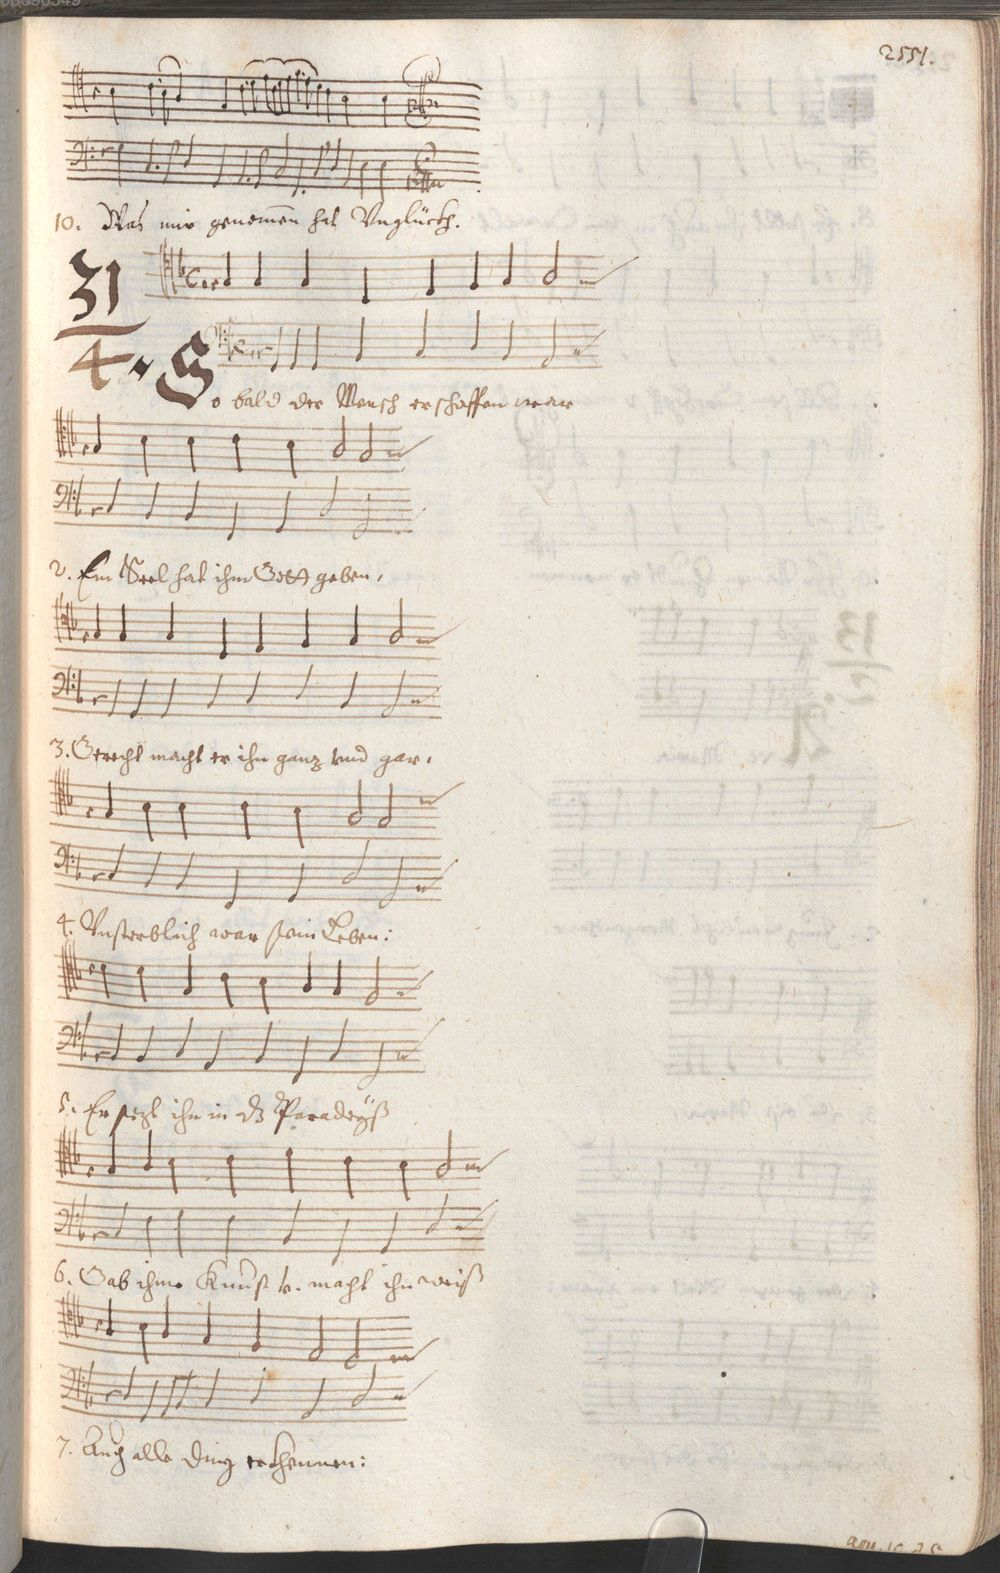 2551.
10. Was mir genomen hat Unglückh.
31
4
So bald der Mensch erschaffen war
2. Ein Seel hat ihm Gott geben,
3. Gerecht macht er ihn ganz und gar,
4. Unsterblich war sein Leben:
5. Er sezt ihn in dz Paradeyß
6. Gab ihme Kunst v. macht ihn weiß
7. Auch alle Ding erkhennen: